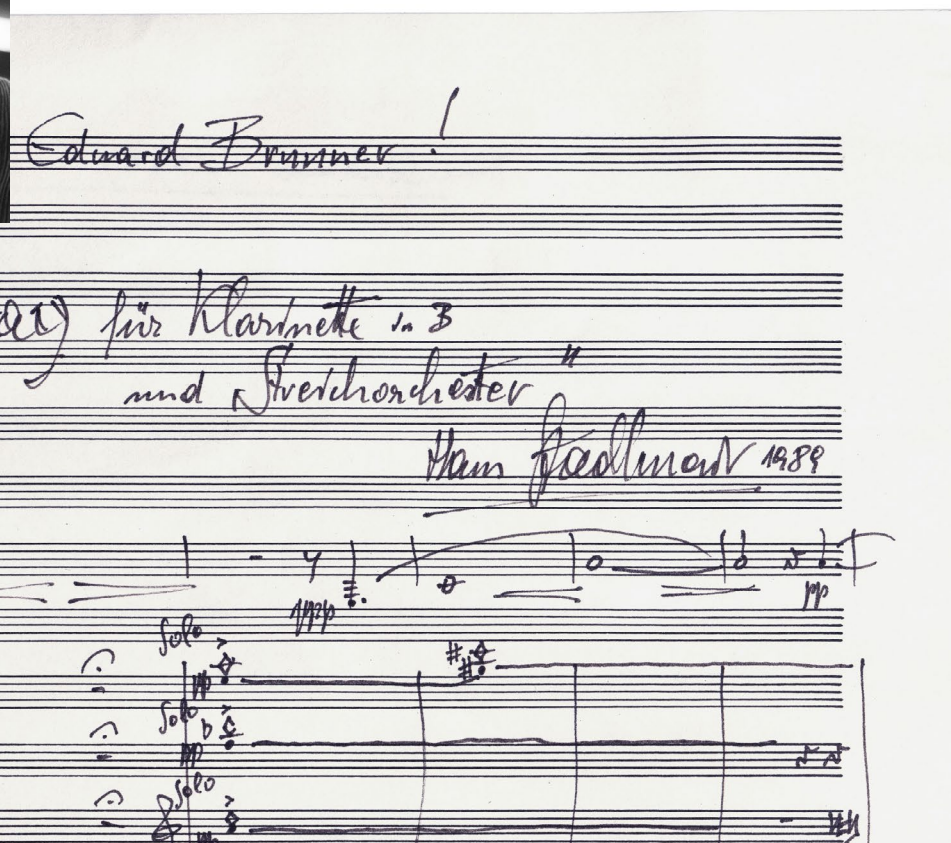 Eduard Brunner!
für Klarinette in B
und „Streichorchester"
Hans Stadlmair 1989
ppp
pp
Solo
pp
Solo
pp
Solo